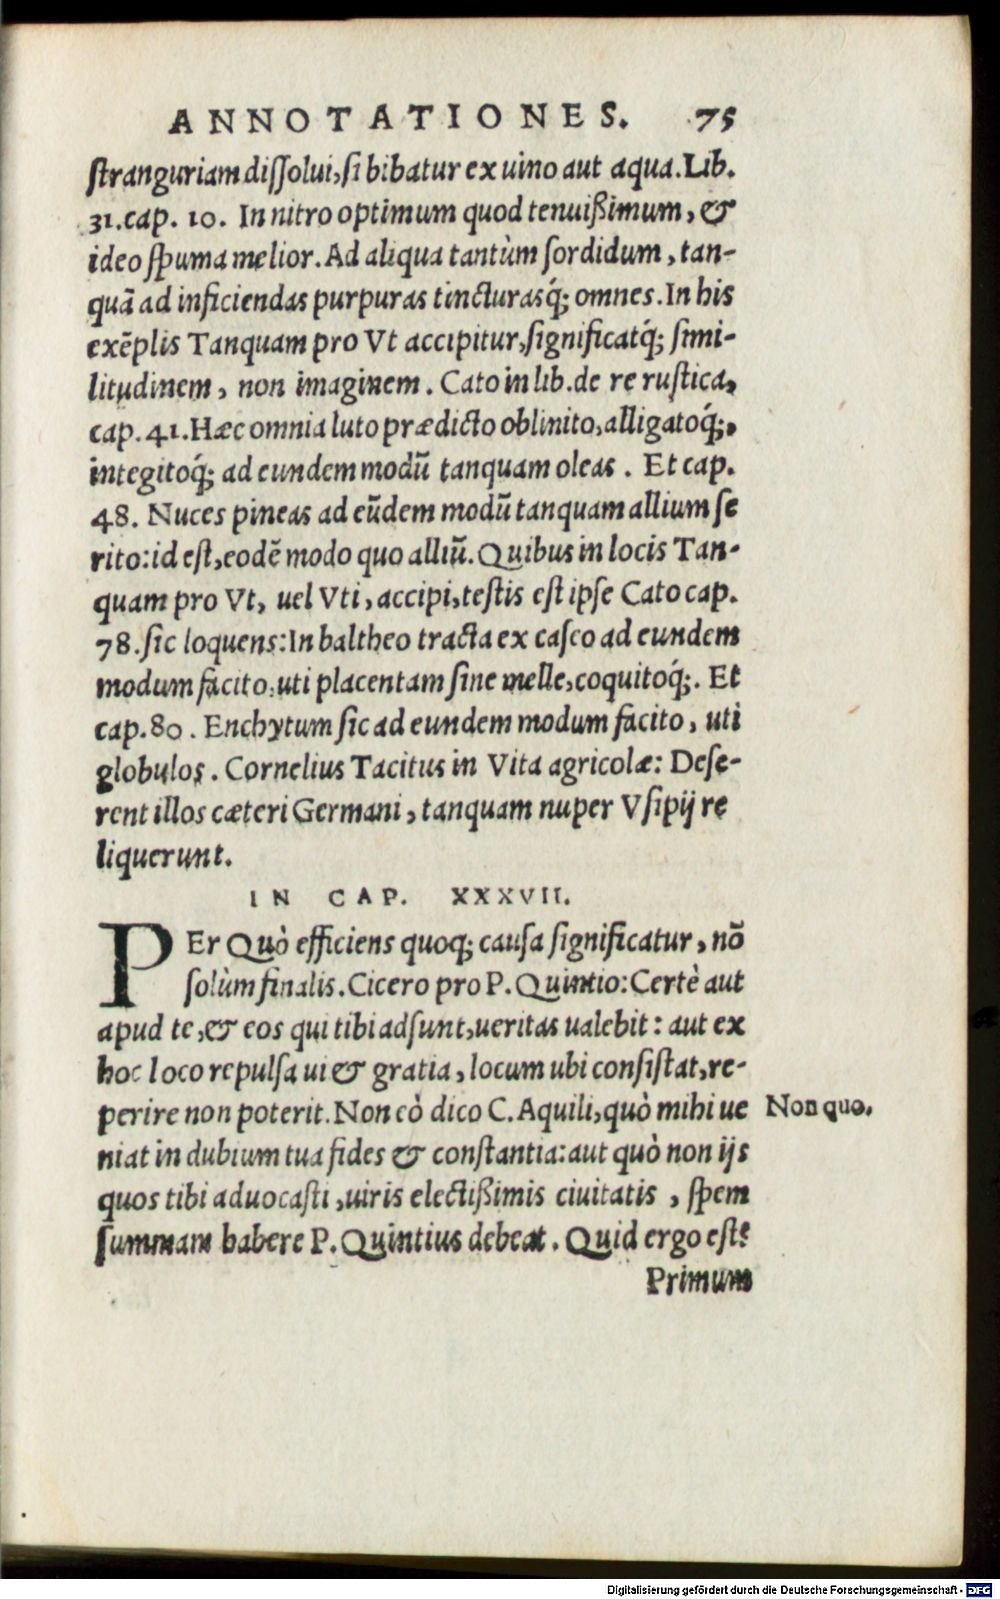 ANNOTATIONES. 75
stranguriam dissolui, si bibatur ex uino aut aqua. Lib.
31. cap. 10. In nitro optimum quod tenuißimum, &
ideo spuma melior. Ad aliqua tantùm sordidum, tan-
quã ad inficiendas purpuras tincturasq́; omnes. In his
exẽplis Tanquam pro Vt accipitur, significatq́; simi-
litudinem, non imaginem. Cato in lib. de re rustica,
cap. 41. Hæc omnia luto prædicto oblinito, alligatoq́;,
integitoq́; ad eundem modũ tanquam oleas. Et cap.
48. Nuces pineas ad eũdem modũ tanquam allium se
rito: id est, eodẽ modo quo alliũ. Quibus in locis Tan-
quam pro Vt, uel Vti, accipi, testis est ipse Cato cap.
78. sic loquens: In baltheo tracta ex caseo ad eundem
modum facito, uti placentam sine melle, coquitoq́;. Et
cap. 80. Enchytum sic ad eundem modum facito, uti
globulos. Cornelius Tacitus in Vita agricolæ: Dese-
rent illos cæteri Germani, tanquam nuper Vsipij re
liquerunt.
IN CAP. XXXVII.
PEr Quò efficiens quoq; causa significatur, nõ
solùm finalis. Cicero pro P. Quintio: Certè aut
apud te, & eos qui tibi adsunt, ueritas ualebit: aut ex
hoc loco repulsa ui & gratia, locum ubi consistat, re-
perire non poterit. Non eò dico C. Aquili, quò mihi ue
Non quo.
niat in dubium tua fides & constantia: aut quò non ijs
quos tibi aduocasti, uiris electißimis ciuitatis, spem
summam habere P. Quintius debeat. Quid ergo est?
Primum
Digitalisierung gefördert durch die Deutsche Forschungsgemeinschaft - DFG